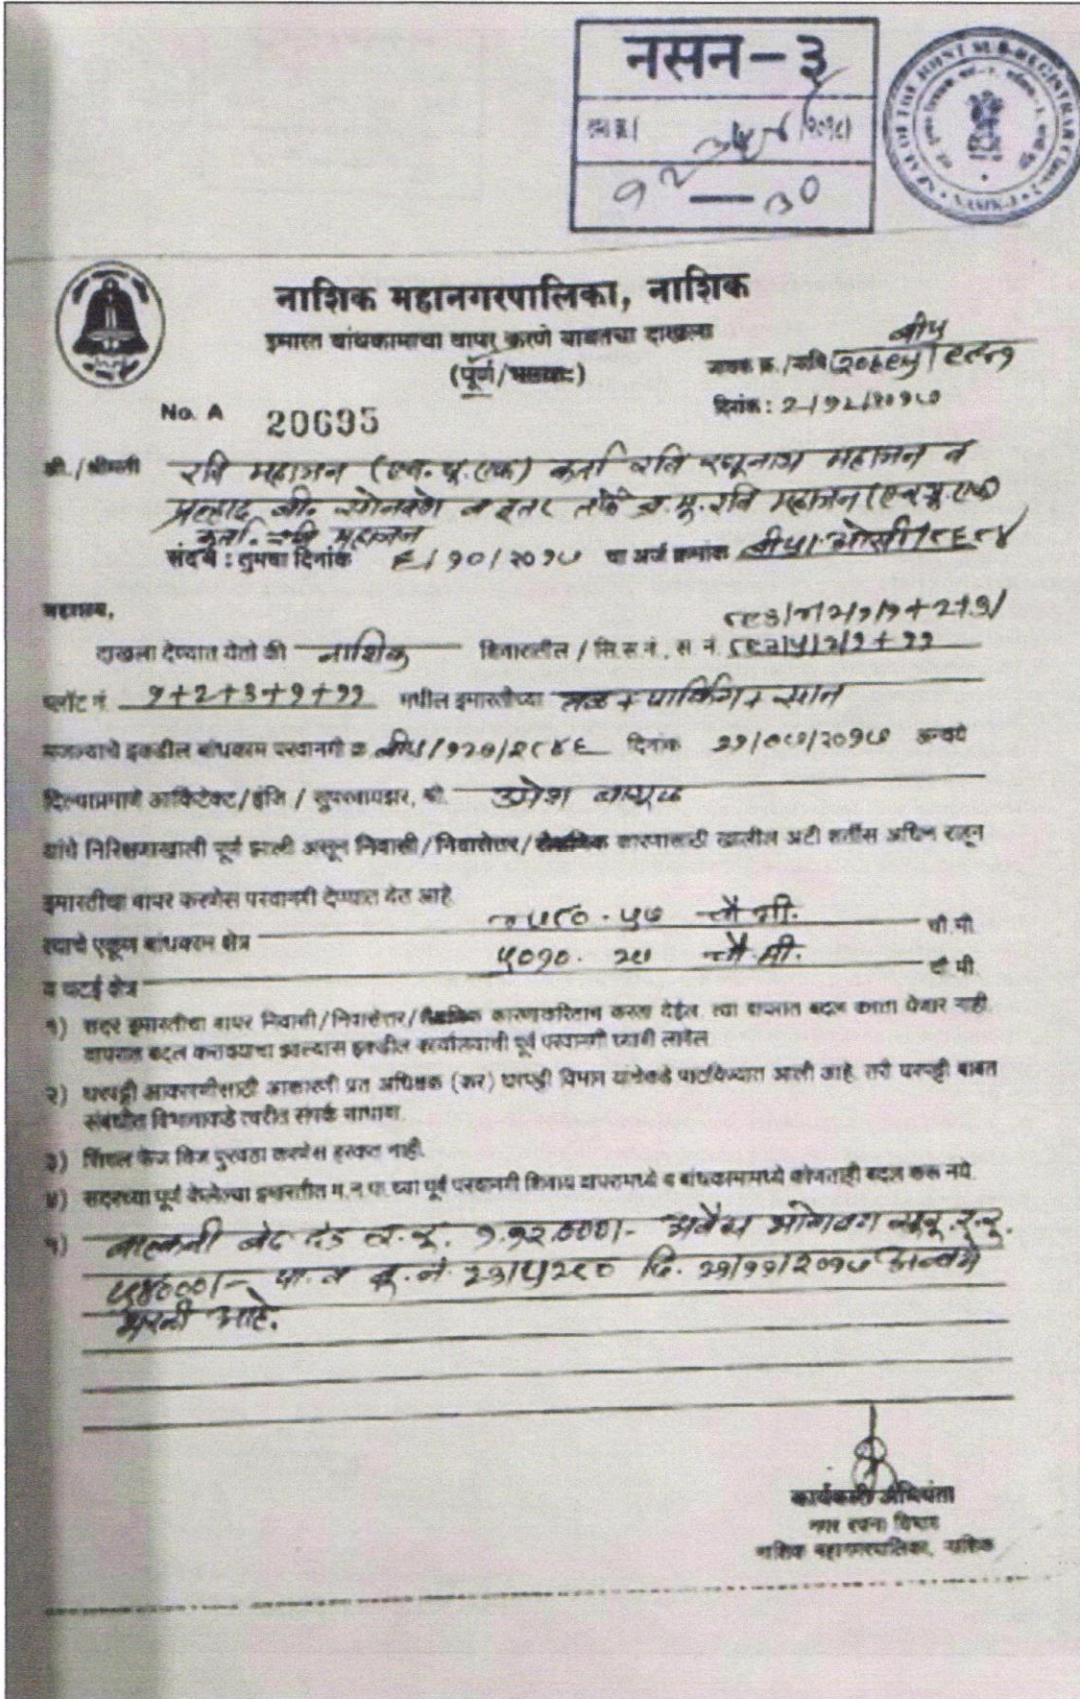 नसन-३
१२ — ३०
SEAL OF THE JOINT SUB-REGISTRAR
NASIK-3
नाशिक महानगरपालिका, नाशिक
इमारत बांधकामाचा वापर करणे बाबतचा दाखला
(पूर्ण/भागशः)
जावक क्र./नवि बीप
दिनांक : २/१२/२०१७
No. A 20695
श्री./श्रीमती रवि महाजन (एच.यू.एफ) कर्ता रवि रघुनाथ महाजन व
प्रल्हाद बी. सोनवणे व इतर तर्फे ज.मु. रवि महाजन (एच.यू.एफ)
कर्ता. रवि महाजन
संदर्भ : तुमचा दिनांक ६/१०/२०१७ चा अर्ज क्रमांक
महाशय,
दाखला देण्यात येतो की नाशिक शिवारातील / सि.स.नं., स.नं.
प्लॉट नं. १+२+३+९+११ मधील इमारतीच्या तळ + पार्किंग + सात
मजल्याचे इकडील बांधकाम परवानगी क्र. दिनांक २१/०७/२०१७ अन्वये
दिल्याप्रमाणे आर्किटेक्ट/इंजि / सुपरवायझर, श्री. उमेश बागुल
यांचे निरिक्षणाखाली पूर्ण झाली असून निवासी/निवासेत्तर/शैक्षणिक कारणासाठी खालील अटी शर्तीस अधिन राहून
इमारतीचा वापर करणेस परवानगी देण्यात येत आहे.
त्याचे एकूण बांधकाम क्षेत्र चौ.मी. चौ.मी.
व चटई क्षेत्र ५०१०.२७ चौ.मी. चौ.मी.
१) सदर इमारतीचा वापर निवासी/निवासेत्तर/शैक्षणिक कारणाकरिताच करता येईल. त्या वापरात बदल करता येणार नाही.
वापरात बदल करावयाचा झाल्यास इकडील कार्यालयाची पूर्व परवानगी घ्यावी लागेल.
२) घरपट्टी आकारणीसाठी आकारणी प्रत अधिक्षक (कर) घरपट्टी विभाग यांचेकडे पाठविण्यात आली आहे. तरी घरपट्टी बाबत
संबंधीत विभागाकडे त्वरीत संपर्क साधावा.
३) सिंगल फेज विज पुरवठा करणेस हरकत नाही.
४) सदरच्या पूर्ण केलेल्या इमारतीत म.न.पा.च्या पूर्व परवानगी शिवाय वापरामध्ये व बांधकामामध्ये कोणताही बदल करू नये.
५) बाल्कनी दंड र.रु. अवैध भोगवटा
पा. व बु. नं. २३/५२८० दि. २१/११/२०१७ अन्वये
भरली आहे.
कार्यकारी अभियंता
नगर रचना विभाग
नाशिक महानगरपालिका, नाशिक